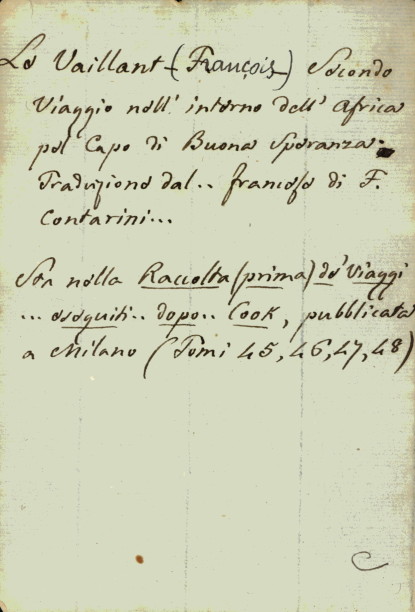 Le Vaillant (François) Secondo
Viaggio nell' interno dell' Africa
pel Capo di Buona Speranza.
Traduzione dal.. francese di F.
Contarini...
Sta nella Raccolta (prima) de' Viaggi
... eseguiti.. dopo.. Cook, pubblicata
a Milano (Tomi 45, 46, 47, 48)
C